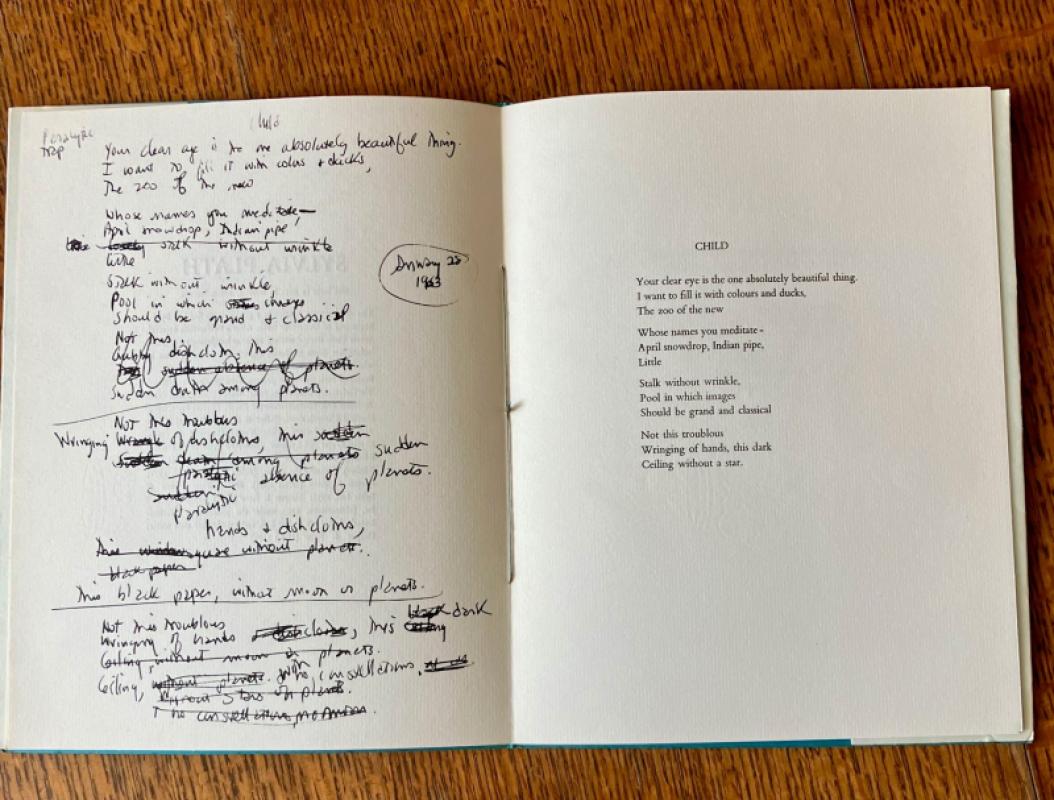 Child
Paralytic
Your clear eye is the one absolutely beautiful thing.
I want to fill it with colors & ducks,
The zoo of the new
Whose names you meditate—
April snowdrop, Indian pipe,
stalk without wrinkle
Little
Stalk without wrinkle,
Pool in which images
Should be grand & classical
Not this
dishcloth, this
sudden absence of planets.
Sudden death among planets.
January 28
1963
Not this troublous
Wringing of dishcloths, this sudden
sudden death among planets sudden
absence of planets.
paralytic
hands & dishcloths,
square without planets.
black paper
This black paper, without moon or planets.
Not this troublous black dark
Wringing of hands & dishcloths, this ceiling
Ceiling, without moon or planets.
Ceiling, without planets. With no constellations,
without stars or planets.
no constellations, no
SYLVIA PLATH
CHILD
Your clear eye is the one absolutely beautiful thing.
I want to fill it with colours and ducks,
The zoo of the new
Whose names you meditate -
April snowdrop, Indian pipe,
Little
Stalk without wrinkle,
Pool in which images
Should be grand and classical
Not this troublous
Wringing of hands, this dark
Ceiling without a star.